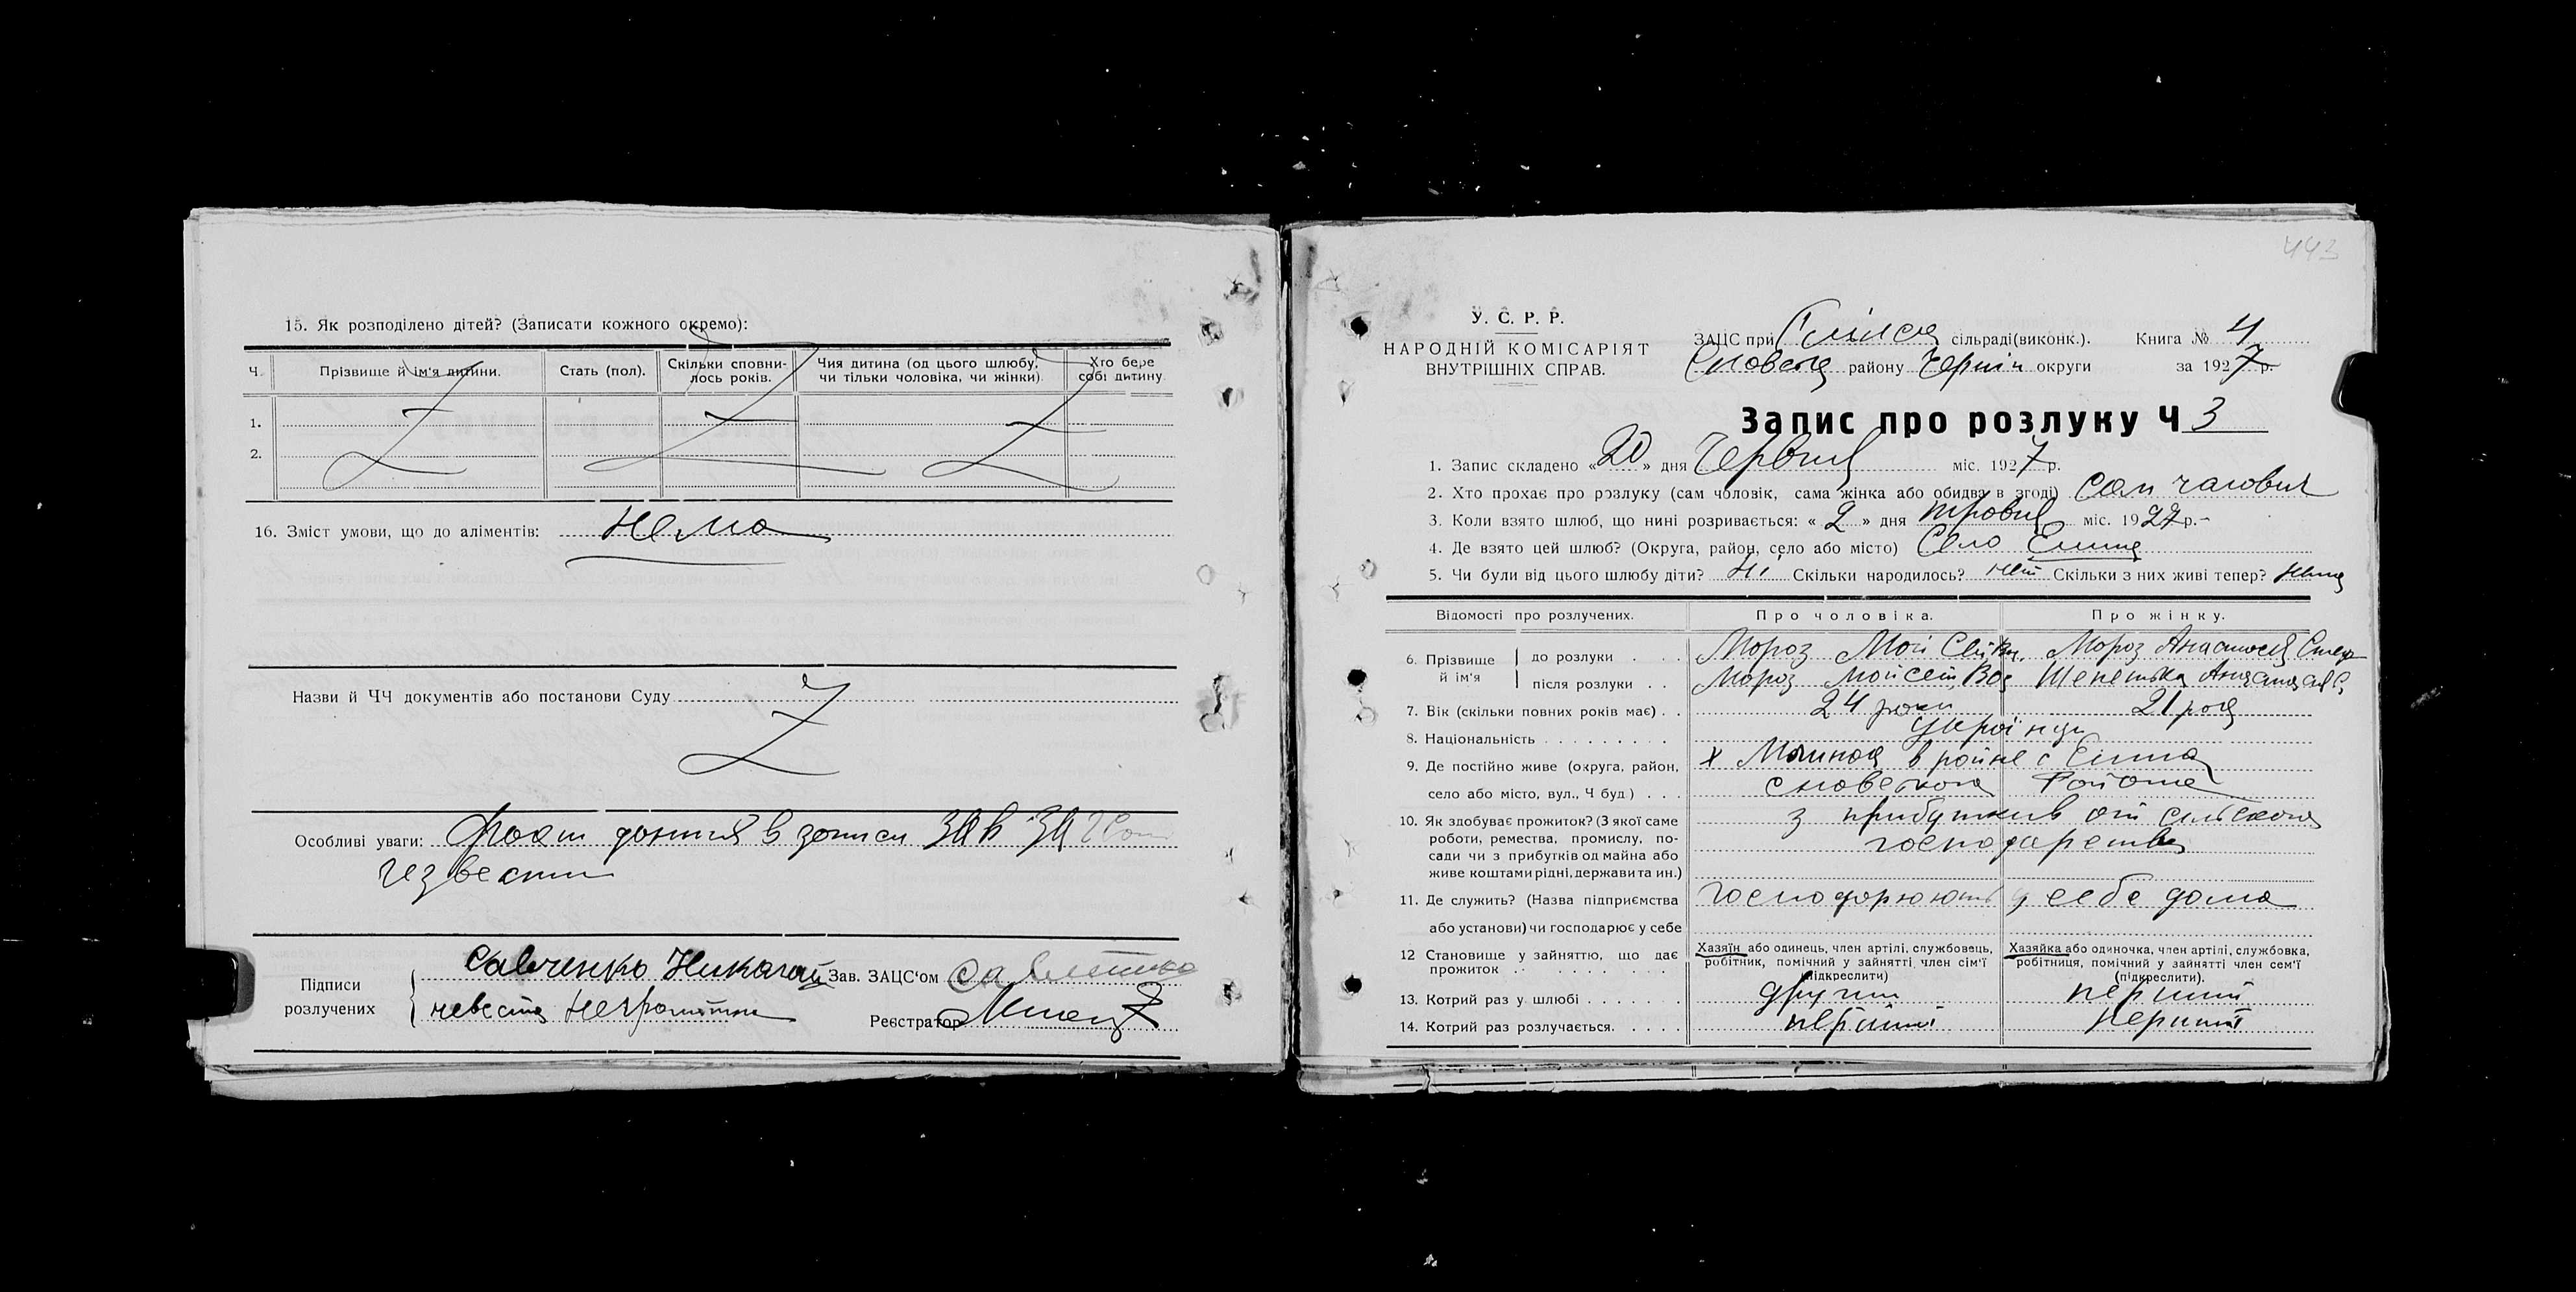 15. Як розподілено дітей? (Записати кожного окремо):
Ч. Прізвище й ім'я дитини. Стать (пол). Скільки сповнилось років. Чия дитина (од цього шлюбу, чи тільки чоловіка, чи жінки) Хто бере собі дитину.
1.
2.
16. Зміст умови, що до аліментів: Нема
Назви й ЧЧ документів або постанови Суду
Особливі уваги:
Підписи розлучених
Савченко Николай Зав. ЗАЦС'ом
невеста неграмотна
Реєстратор
443
У. С. Р. Р.
НАРОДНІЙ КОМІСАРІЯТ
ВНУТРІШНІХ СПРАВ.
ЗАЦС при сільраді (виконк.). Книга № 4
району Черніг округи за 1927 р.
Запис про розлуку Ч 3
1. Запис складено «20» дня Червня міс. 1927 р.
2. Хто прохає про розлуку (сам чоловік, сама жінка або обидва в згоді) Сам
3. Коли взято шлюб, що нині розривається: «2» дня травня міс. 1927 р.
4. Де взято цей шлюб? (Округа, район, село або місто) Село
5. Чи були від цього шлюбу діти? Ні Скільки народилось? Скільки з них живі тепер?
Відомості про розлучених. Про чоловіка. Про жінку.
6. Прізвище й ім'я
до розлуки . . . Мороз Мойсей Мороз Анастасія
після розлуки . . Мороз Мойсей
7. Вік (скільки повних років має) . . 24 роки 21 род
8. Національність . . . . . . . . . українці
9. Де постійно живе (округа, район,
село або місто, вул., Ч буд) . . .
10. Як здобуває прожиток? (З якої саме
роботи, ремества, промислу, по-
сади чи з прибутків од майна або
живе коштами рідні, держави та ин.)
з прибутків от сільского
господарства
11. Де служить? (Назва підприємства
або установи) чи господарює у себе
господорюють у себе дома
12 Становище у зайняттю, що дає
прожиток . . . . . . . . .
Хазяїн або одинець, член артілі, службовець,
робітник, помічний у зайнятті член сім'ї
(підкреслити)
Хазяйка або одиночка, член артілі, службовка,
робітниця, помічний у зайнятті член сем'ї
(підкреслити).
13. Котрий раз у шлюбі . . . . . . . другий перший
14. Котрий раз розлучається. . . . . перший перший